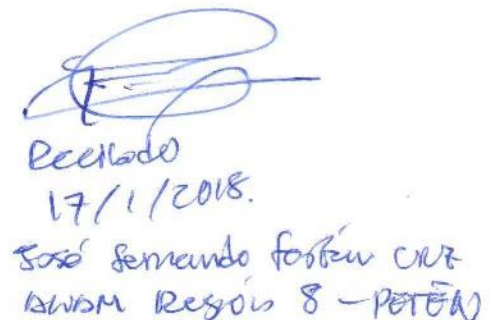 Recibido
17/1/2018.
José Fernando CRUZ
Región 8 - PETÉN